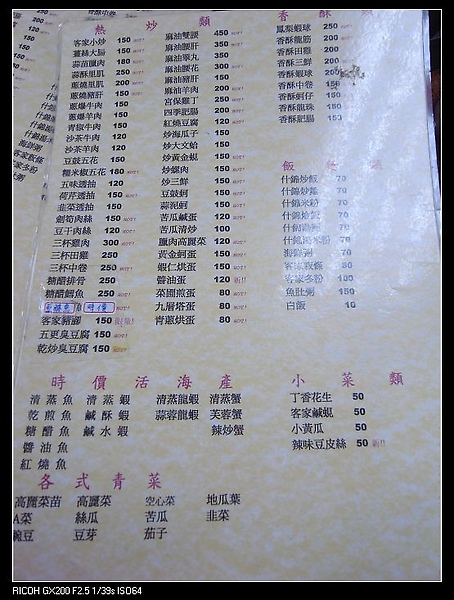 熱炒類
客家小炒 150
薑絲大腸 150
蒜苗臘肉 180
蒜砂里肌 250
蔥爆里肌 200
蔥燒豬肝 150
蔥爆牛肉 150
蔥爆羊肉 150
青椒牛肉 150
沙茶牛肉 120
沙茶羊肉 120
豆鼓五花 150
糯米椒五花 180
五味透抽 120
荷芹透抽 150
韭菜透抽 150
劍筍肉絲 150
豆干肉絲 120
三杯雞肉 300
三杯田雞 250
三杯中卷 250
糖醋排骨 250
糖醋鱈魚 250
時價
客家豬腳 150
五更臭豆腐 150
乾炒臭豆腐 150
麻油雙腰 450
麻油腰肝 350
麻油睪丸 350
麻油腰花 300
麻油豬肝 150
麻油羊肉 200
宮保丁 200
四季肥腸 200
紅燒豆腐 120
炒海瓜子 150
炒大文蛤 150
炒黃金蜆 150
炒螺肉 150
炒三鮮 150
豆鼓蚵 150
蒜泥蚵 150
苦瓜鹹蛋 120
苦瓜清炒 100
臘肉高麗菜 120
黃金蚵蛋 150
蝦仁烘蛋 150
醬油蛋 120
菜圃煎蛋 80
九層塔蛋 80
青蔥烘蛋 80
香酥類
鳳梨蝦球 250
香酥龍筋 200
香酥田雞 200
香酥三鮮 200
香酥蝦球 200
香酥中卷 150
香酥蚵仔 150
香酥龍珠 150
香酥肥腸 150
飯
什錦炒飯 70
什錦炒麵 70
什錦米粉 70
什錦燴飯 70
什錦湯麵 70
什錦湯米粉 70
海鮮粥 70
客家粄條 80
客家冬粉 100
魚肚粥 150
白飯 10
時價活海產
清蒸魚 清蒸蝦 清蒸龍蝦 清蒸蟹
乾煎魚 鹹酥蝦 蒜蓉龍蝦 芙蓉蟹
糖醋魚 鹹水蝦 辣炒蟹
醬油魚
紅燒魚
小菜類
丁香花生 50
客家鹹蜆 50
小黃瓜 50
辣味豆皮絲 50
各式青菜
高麗菜苗 高麗菜 空心菜 地瓜葉
A菜 絲瓜 苦瓜 韭菜
豌豆 豆芽 茄子
RICOH GX200 F2.5 1/39s ISO64